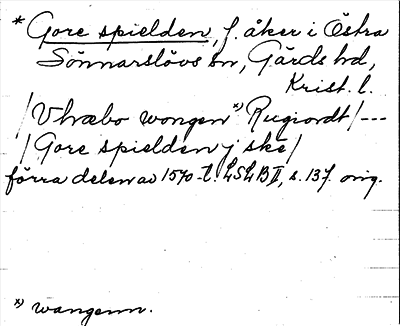 * Gore spielden, f. åker i Östra
Sönnarslövs sn, Gärds hd,
Krist. l.
/Vhræbo wongen *) Rugiordt/---
/Gore spielden j ske/
förra delen av 1570-t. LSLB II, s. 137. orig.
*) wangenn.